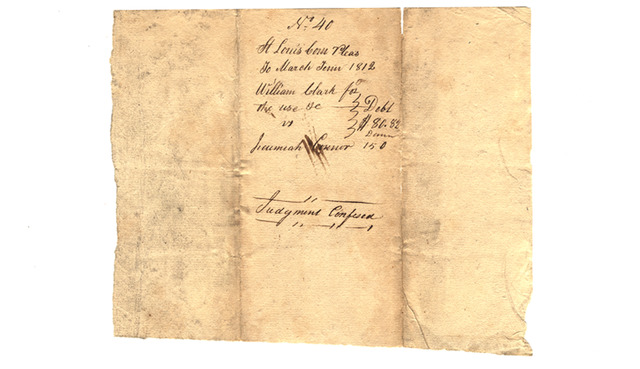 No 40
St Louis Com Pleas
To March Term 1812
William Clark for
the use &c } Debt
vs } $80.82
Damn
Jeremiah Connor 150
Judgment Confesed